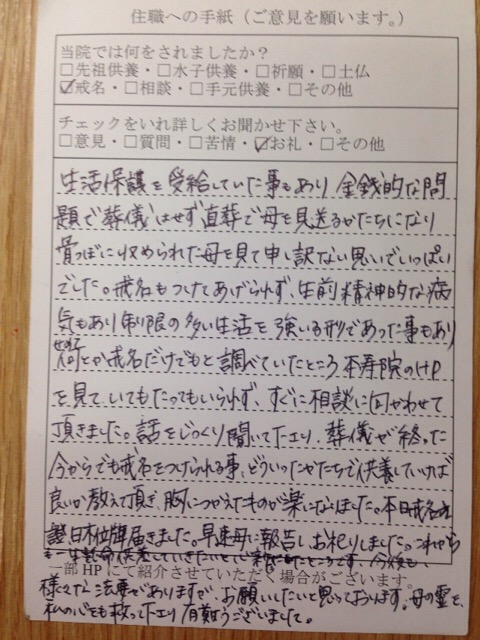 住職への手紙（ご意見を願います。）
当院では何をされましたか？
□先祖供養・□水子供養・□祈願・□土仏
☑戒名・□相談・□手元供養・□その他
チェックをいれ詳しくお聞かせ下さい。
□意見・□質問・□苦情・☑お礼・□その他
生活保護を受給していた事もあり 金銭的な問
題で葬儀はせず直葬で母を見送るかたちになり
骨つぼに収められた母を見て申し訳ない思いでいっぱい
でした。戒名もつけてあげられず、生前精神的な病
気もあり制限の多い生活を強いる形であった事もあり
せめて
何とか戒名だけでもと調べていたところ 本寿院のHP
を見て、いてもたってもいられず、すぐに相談に伺わせて
頂きました。話をじっくり聞いて下さり、葬儀が終った
今からでも戒名をつけられる事、どういったかたちで供養していけば
良いか教えて頂き、胸につかえたものが楽になりました。本日戒名
証日本位牌届きました。早速母に報告しお祀りしました。これから
供養していきたいと ところです。今後も、
一部HPにて紹介させていただく場合がございます。
様々な法要でありますが、お願いしたいと思っております。母の霊を、
私の心をも救って下さり有難うございました。